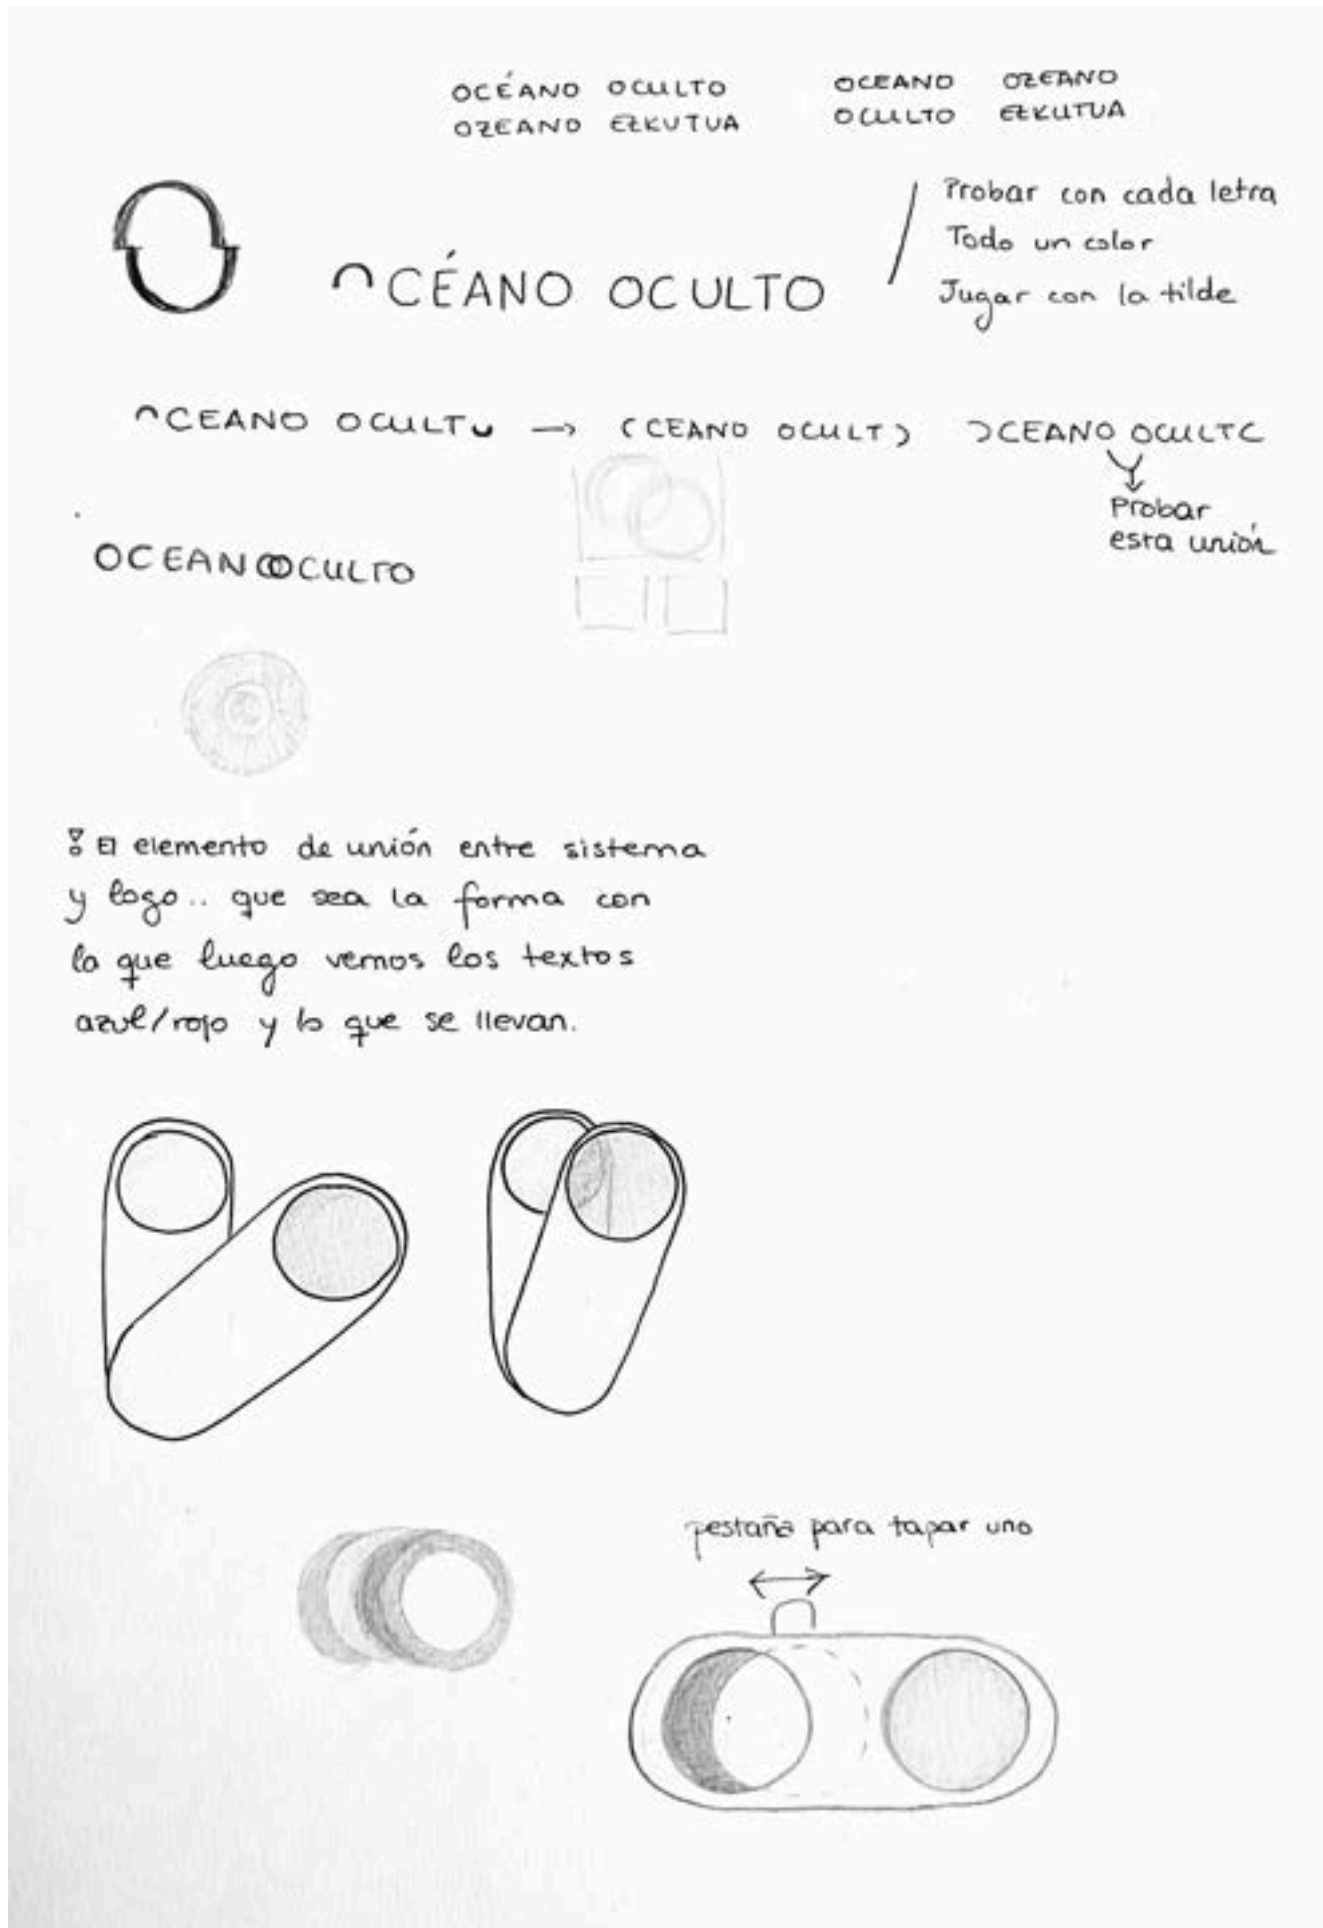 OCÉANO OCULTO
OZEANO EZKUTUA
OCEANO OZEANO
OCULTO EZKUTUA
Probar con cada letra
Todo un color
Jugar con la tilde
∩CÉANO OCULTO
∩CEANO OCULT∪ → (CEANO OCULT) ƆCEANO OCULTC
Probar
esta unión
OCEANOOCULTO
El elemento de unión entre sistema
y logo.. que sea la forma con
la que luego vemos los textos
azul/rojo y lo que se llevan.
pestaña para tapar uno